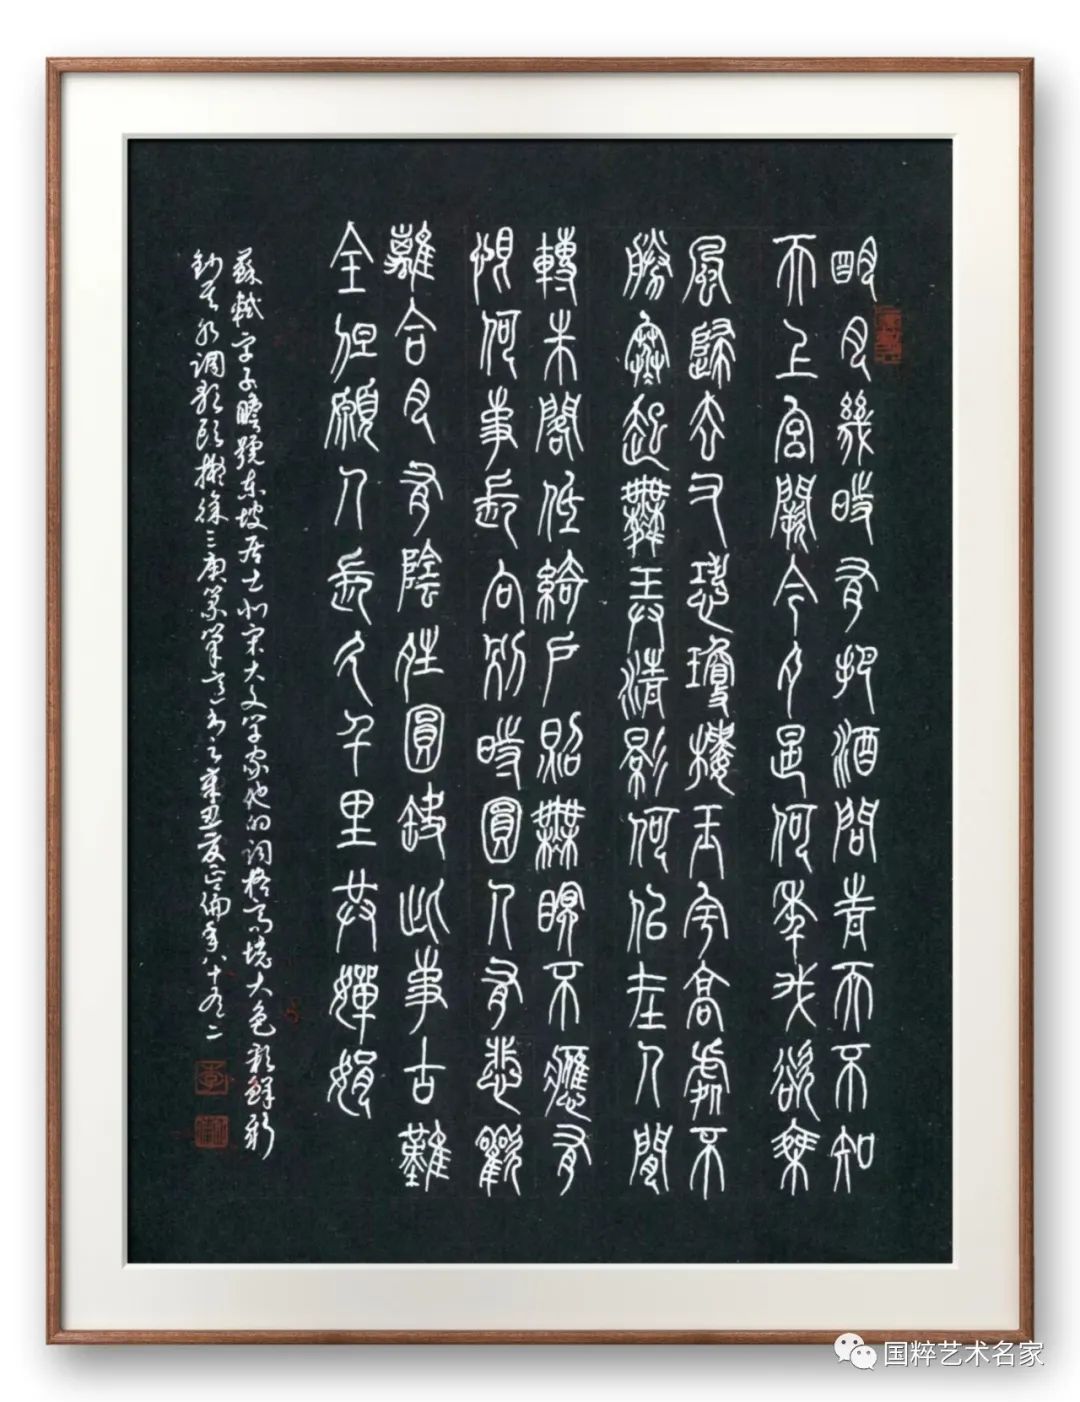 明月幾時有把酒問青天不知
天上宮闕今夕是何年我欲乘
風歸去又恐瓊樓玉宇高處不
勝寒起舞弄清影何似在人間
轉朱閣低綺戶照無眠不應有
恨何事長向別時圓人有悲歡
離合月有陰晴圓缺此事古難
全但願人長久千里共嬋娟
蘇軾字子瞻號東坡居士北宋大文學家他的詞格高境大色彩鮮新
鈔其水調歌頭擬徐三庚篆筆意為之辛丑夏正倫年八十有二
国粹艺术名家